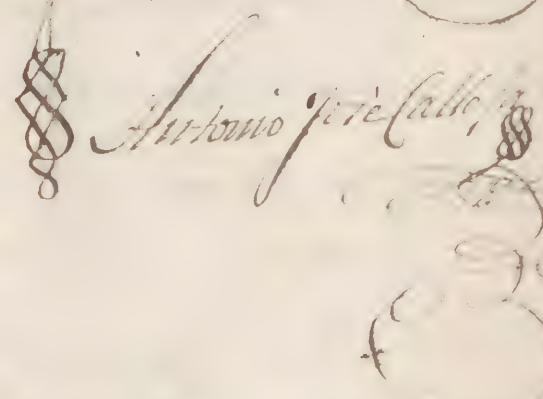 Antonio José Calle